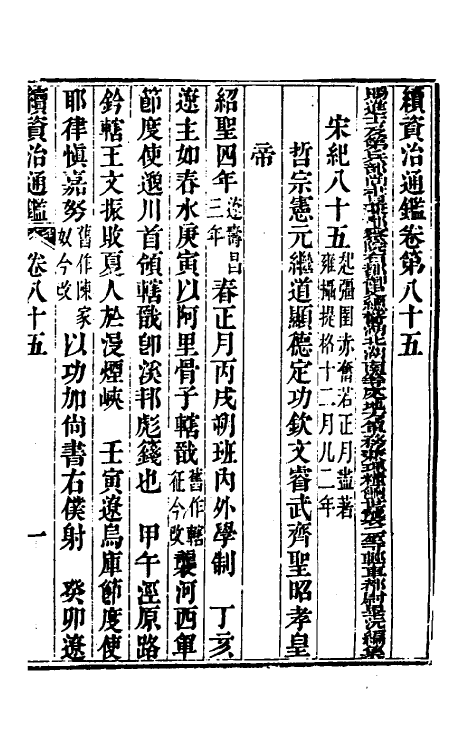 續資治通鑑卷第八十五
賜進士及第兵部尚書兼都察院右都御史總督湖北湖南等處地方軍務兼理糧餉世襲二等輕車都尉畢沅編集
宋紀八十五起彊圉赤奮若正月盡著雍攝提格十二月凡二年
哲宗憲元繼道顯德定功欽文睿武齊聖昭孝皇
帝
紹聖四年遼壽昌三年春正月丙戌朔班內外學制 丁亥
遼主如春水庚寅以阿里骨子轄戩舊作轄征今改襲河西軍
節度使邈川首領轄戩卽溪邦彪籛也 甲午涇原路
鈐轄王文振敗夏人於沒煙峽 壬寅遼烏庫節度使
耶律愼嘉努舊作陳家奴今改以功加尙書右僕射 癸卯遼
續資治通鑑 卷八十五 一